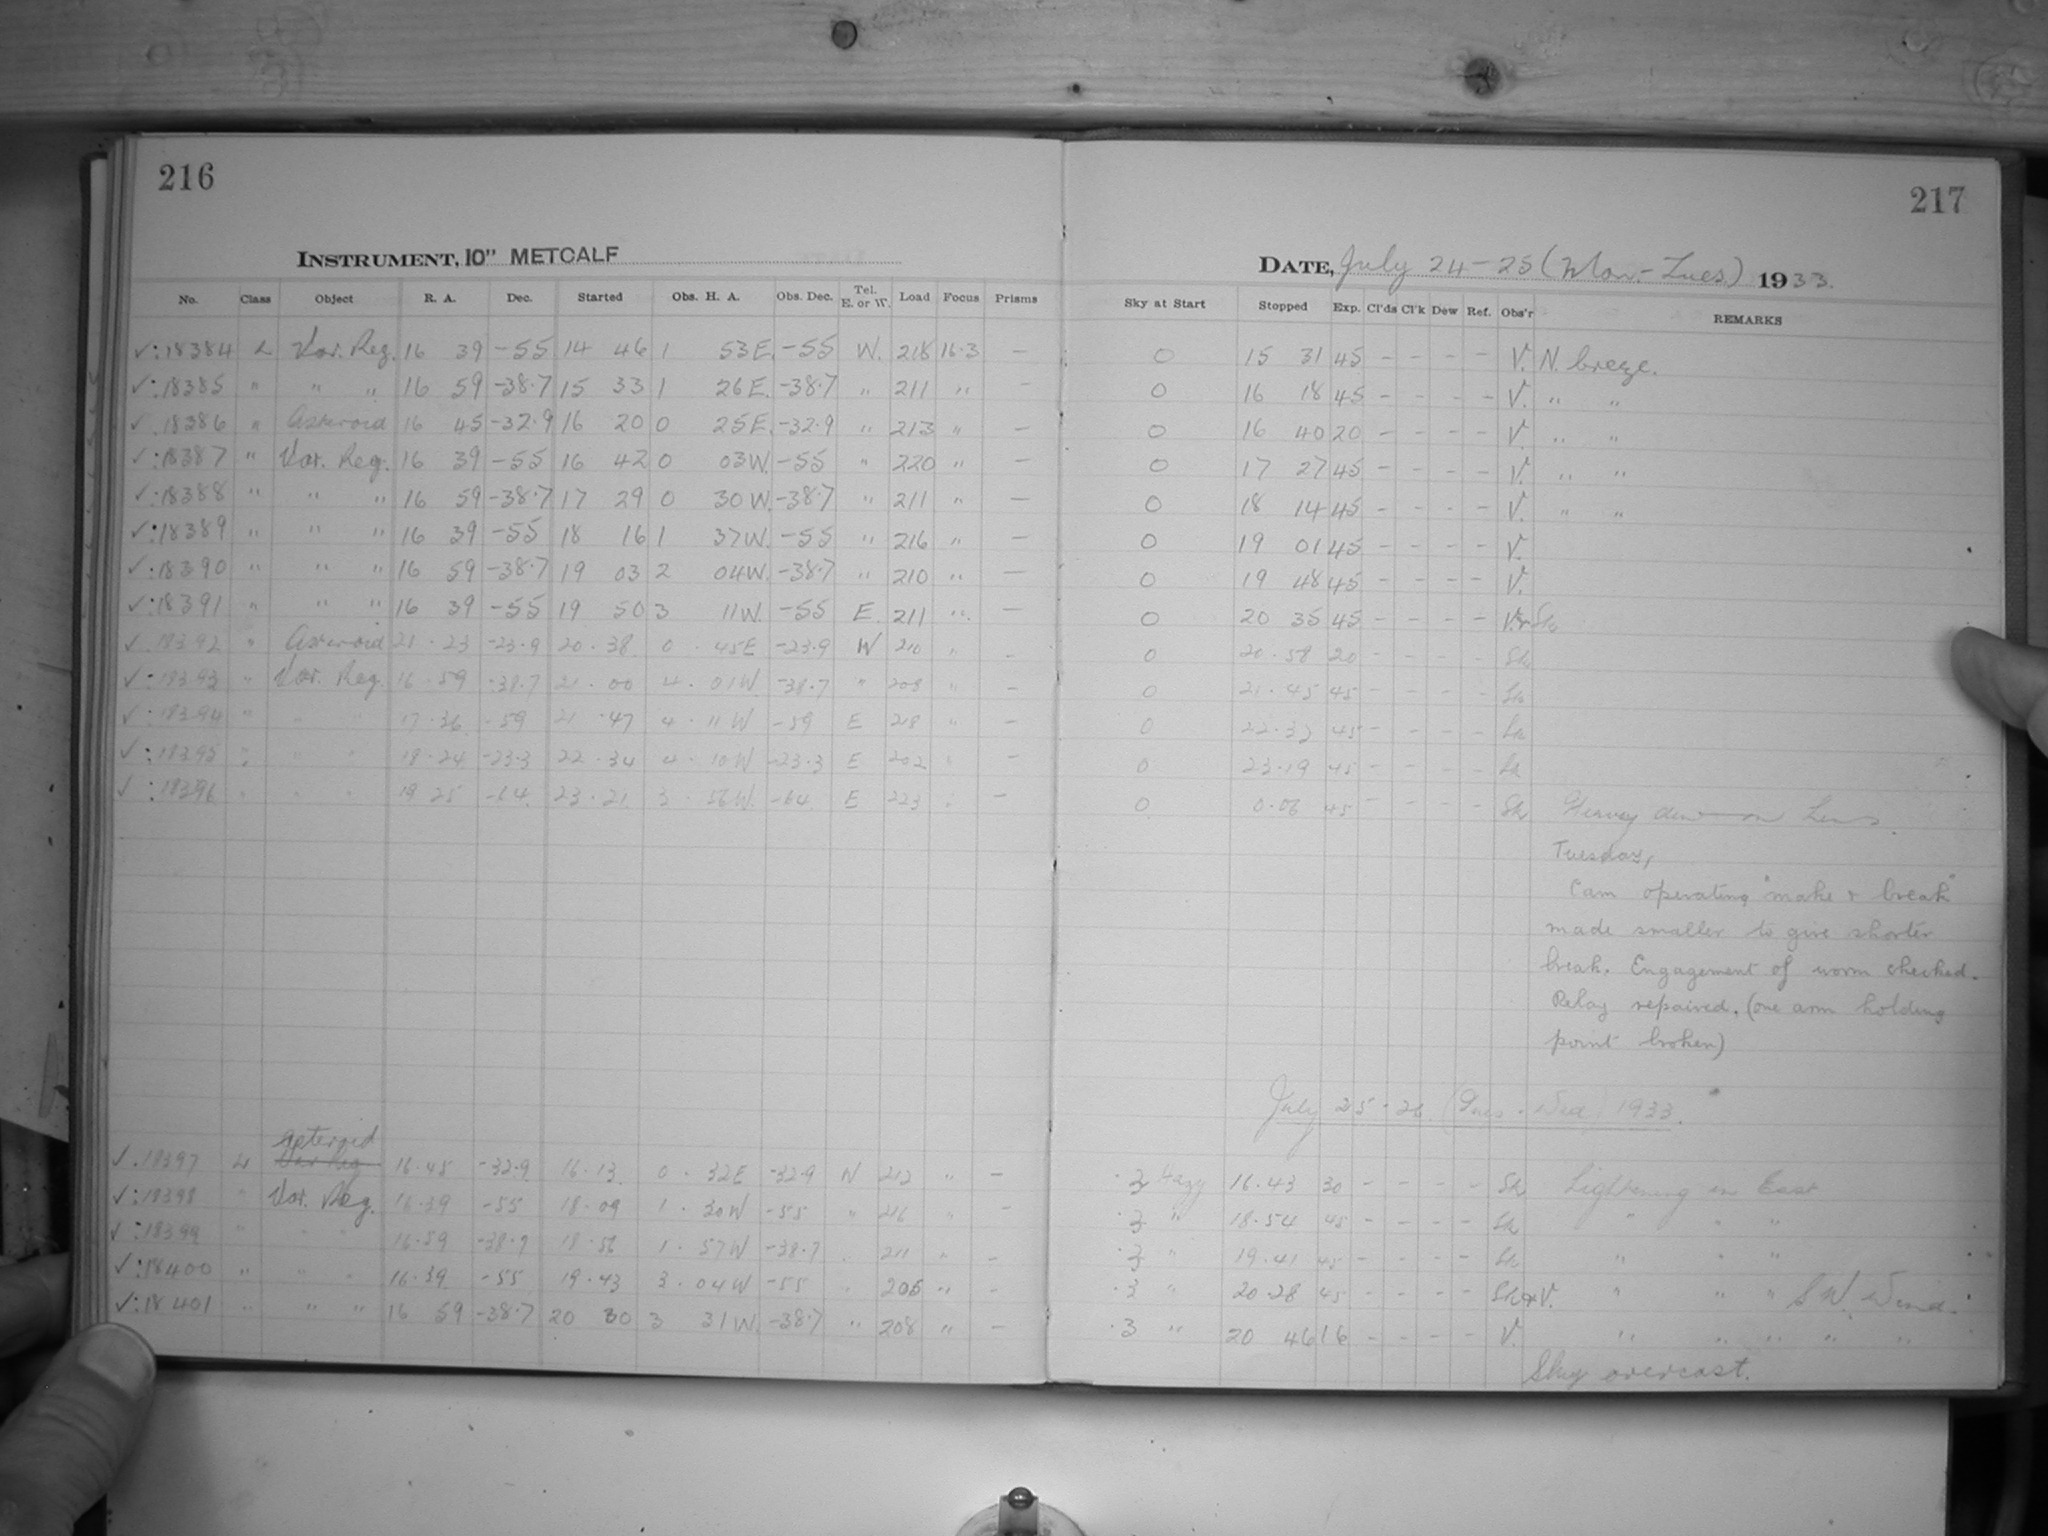 216
INSTRUMENT, 10" METCALF
No. Class Object R. A. Dec. Started Obs. H. A. Obs. Dec. Tel. E. or W. Load Focus Prisms
✓:18384 L Var. Reg. 16 39 -55 14 46 1 53E. -55 W. 218 16.3 —
✓:18385 " " " 16 59 -38.7 15 33 1 26E. -38.7 " 211 " —
✓.18386 " Asteroid 16 45 -32.9 16 20 0 25E. -32.9 " 213 " —
✓:18387 " Var. Reg. 16 39 -55 16 42 0 03W. -55 " 220 " —
✓:18388 " " " 16 59 -38.7 17 29 0 30W. -38.7 " 211 " —
✓:18389 " " " 16 39 -55 18 16 1 37W. -55 " 216 " —
✓:18390 " " " 16 59 -38.7 19 03 2 04W. -38.7 " 210 " —
✓:18391 " " " 16 39 -55 19 50 3 11W. -55 E. 211 " —
✓.18392 " Asteroid 21.23 -23.9 20.38 0.45E -23.9 W 210 " —
✓:18393 " Var. Reg. 16.59 -38.7 21.00 4.01W -38.7 " 208 " —
✓:18394 " " " 17.36 -59 21.47 4.11W -59 E 218 " —
✓:18395 " " " 18.24 -23.3 22.34 4.10W -23.3 E 202 " —
✓:18396 " " " 19 25 -64 23.21 3.56W. -64 E 223 " —
asteroid
✓.18397 L Var Reg 16.45 -32.9 16.13 0.32E -32.9 W 212 " —
✓:18398 " Var. Reg. 16.39 -55 18.09 1.30W -55 " 216 " —
✓:18399 " " " 16.59 -38.7 18.56 1.57W -38.7 " 211 " —
✓:18400 " " " 16.39 -55 19.43 3.04W -55 " 206 " —
✓:18401 " " " 16 59 -38.7 20 30 3 31W. -38.7 " 208 " —
217
DATE, July 24-25 (Mon.-Tues.) 1933.
Sky at Start Stopped Exp. Cl'ds Cl'k Dew Ref. Obs'r REMARKS
0 15 31 45 - - - - V. N. breeze.
0 16 18 45 - - - - V. " "
0 16 40 20 - - - - V. " "
0 17 27 45 - - - - V. " "
0 18 14 45 - - - - V. " "
0 19 01 45 - - - - V.
0 19 48 45 - - - - V.
0 20 35 45 - - - - V.+Sh
0 20.58 20 - - - - Sh
0 21.45 45 - - - - Sh
0 22.32 45 - - - - Sh
0 23.19 45 - - - - Sh
0 0.06 45 - - - - Sh Heavy dew on Lens.
Tuesday,
Cam operating "make & break"
made smaller to give shorter
break. Engagement of worm checked.
Relay repaired. (one arm holding
point broken)
July 25-26 (Tues-Wed) 1933.
.3 Hazy 16.43 30 - - - - Sh Lightening in East
.3 " 18.54 45 - - - - Sh " " "
.3 " 19.41 45 - - - - Sh " " "
.3 " 20.28 45 - - - - Sh+V. " " " S.W. Wind.
.3 " 20 46 16 - - - - V. " " " " "
Sky overcast.